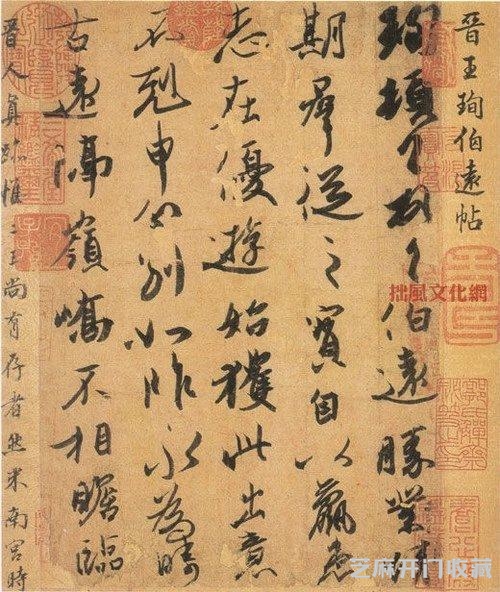 晉王珣伯遠帖
珣頓首頓首伯遠勝業情
期羣從之寶自以羸患
志在優遊始獲此出意
不剋申分別如昨永為疇
古遠隔嶺嶠不相瞻臨
晉人真跡惟二王尚有存者然米南宮時
拙風文化網
芝麻开门收藏